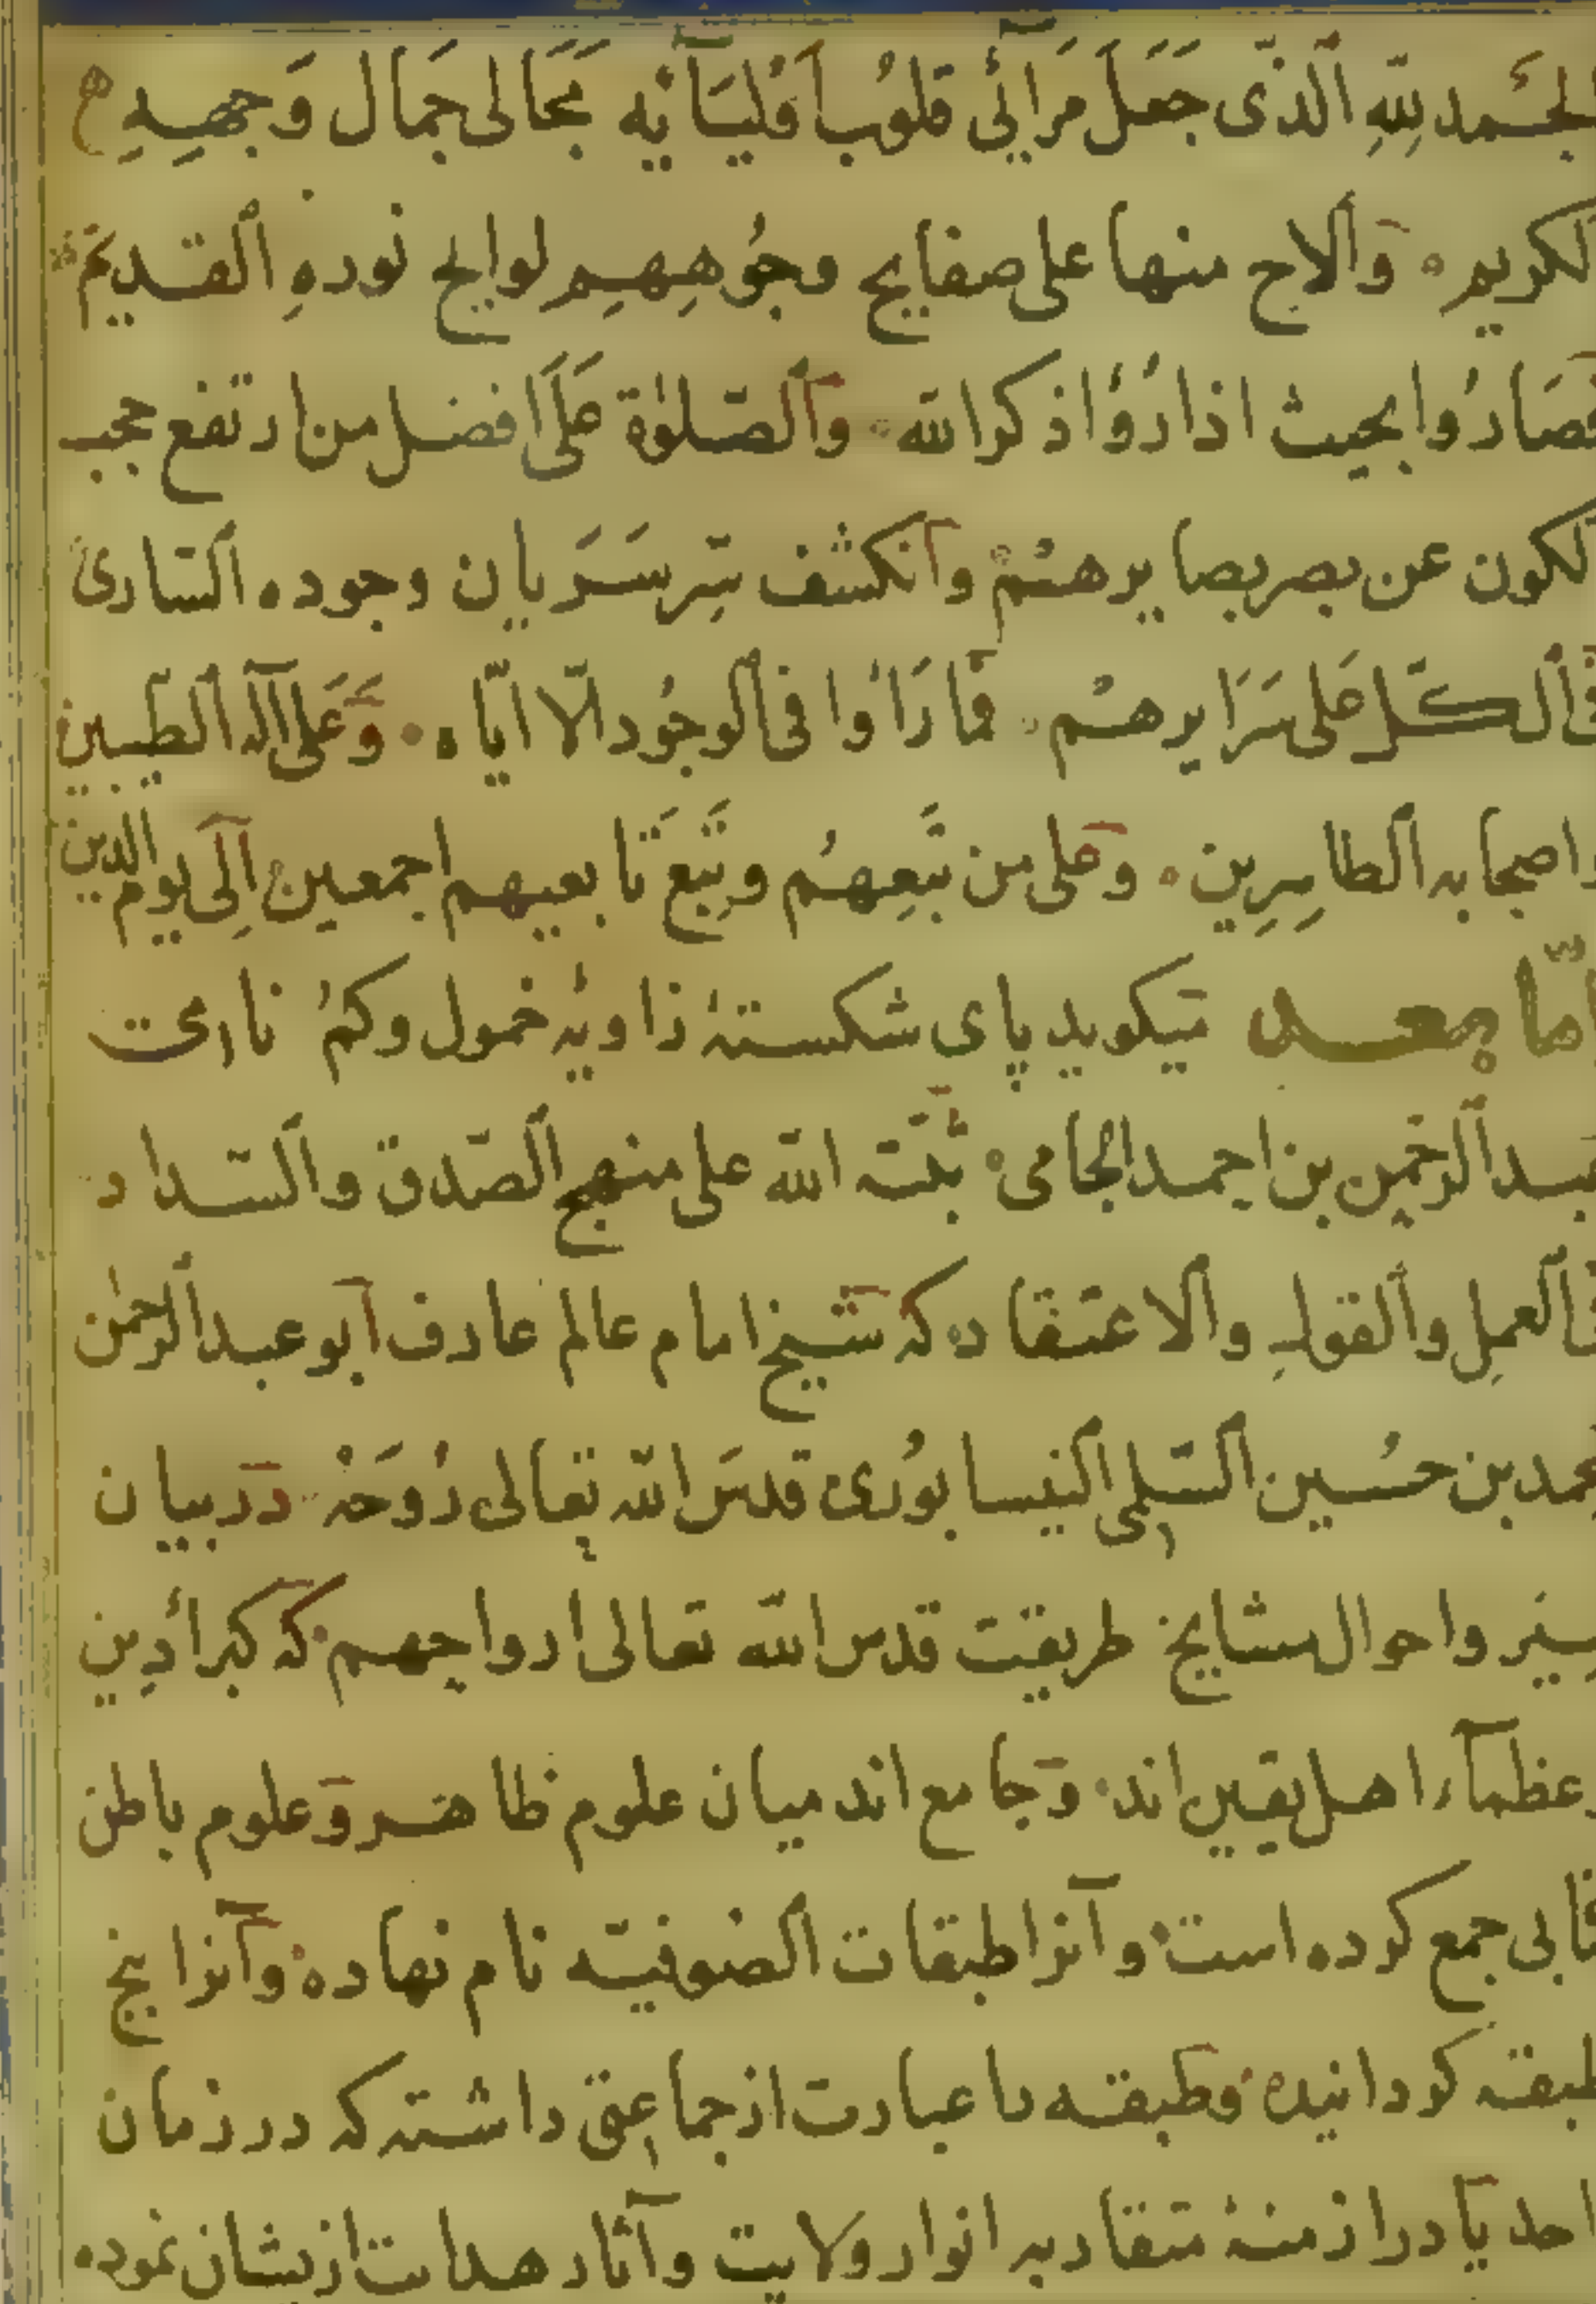 الحمد لله الذی جعل مرائی قلوب اولیائه مجالی جمال وجهه
الکریم والاح منها علی صفایح وجوههم لوایح نوره القدیم
فصاروا بحیث اذا رؤا ذکر الله والصلوة علی افضل من ارتفع حجب
الکون عن بصر بصایرهم وانکشف سر سریان وجوده الساری
فی الکل علی سرایرهم فما رأوا فی الوجود الا ایاه وعلی آله الطیبین
واصحابه الطاهرین وعلی من تبعهم وتبع تابعیهم اجمعین الی یوم الدین
اما بعد میکوید پای شکستۀ زاویه خمول وکم
عبد الرحمن بن احمد الجامی ثبته الله علی منهج الصدق والسداد
فی العمل والقول والاعتقاد که شیخ امام عالم عارف ابو عبد الرحمن
محمد بن حسین السلمی النیسابوری قدس الله تعالی روحه در بیان
سیر واحوال مشایخ طریقت قدس الله تعالی ارواحهم که کبراء دین
وعظماء اهل یقین اند وجامع اند میان علوم ظاهر وعلوم باطن
کتابی جمع کرده است وآنرا طبقات الصوفیه نام نهاده وآنرا پنج
طبقه کردانیده وطبقه را عبارت از جماعتی داشته که در زمان
واحد یا در ازمنۀ متقاربه انوار ولایت وآثار هدایت ازیشان نموده